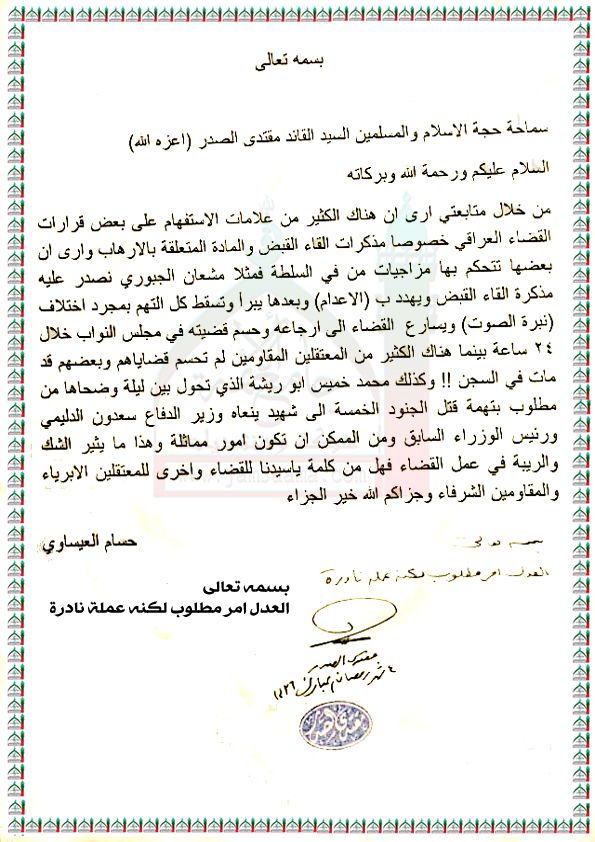 بسمه تعالى
سماحة حجة الاسلام والمسلمين السيد القائد مقتدى الصدر (اعزه الله)
السلام عليكم ورحمة الله وبركاته
من خلال متابعتي ارى ان هناك الكثير من علامات الاستفهام على بعض قرارات
القضاء العراقي خصوصا مذكرات القاء القبض والمادة المتعلقة بالارهاب وارى ان
بعضها تتحكم بها مزاجيات من في السلطة فمثلا مشعان الجبوري تصدر عليه
مذكرة القاء القبض ويهدد ب (الاعدام) وبعدها يبرأ وتسقط كل التهم بمجرد اختلاف
(نبرة الصوت) ويسارع القضاء الى ارجاعه وحسم قضيته في مجلس النواب خلال
٢٤ ساعة بينما هناك الكثير من المعتقلين المقاومين لم تحسم قضاياهم وبعضهم قد
مات في السجن !! وكذلك محمد خميس ابو ريشة الذي تحول بين ليلة وضحاها من
مطلوب بتهمة قتل الجنود الخمسة الى شهيد ينعاه وزير الدفاع سعدون الدليمي
ورئيس الوزراء السابق ومن الممكن ان تكون امور مماثلة وهذا ما يثير الشك
والريبة في عمل القضاء فهل من كلمة ياسيدنا للقضاء واخرى للمعتقلين الابرياء
والمقاومين الشرفاء وجزاكم الله خير الجزاء
حسام العيساوي
بسمه تعالى
العدل امر مطلوب لكنه عملة نادرة
بسمه تعالى
العدل امر مطلوب لكنه عملة نادرة
مقتدى الصدر
٤ شهر رمضان المبارك ١٤٣٦